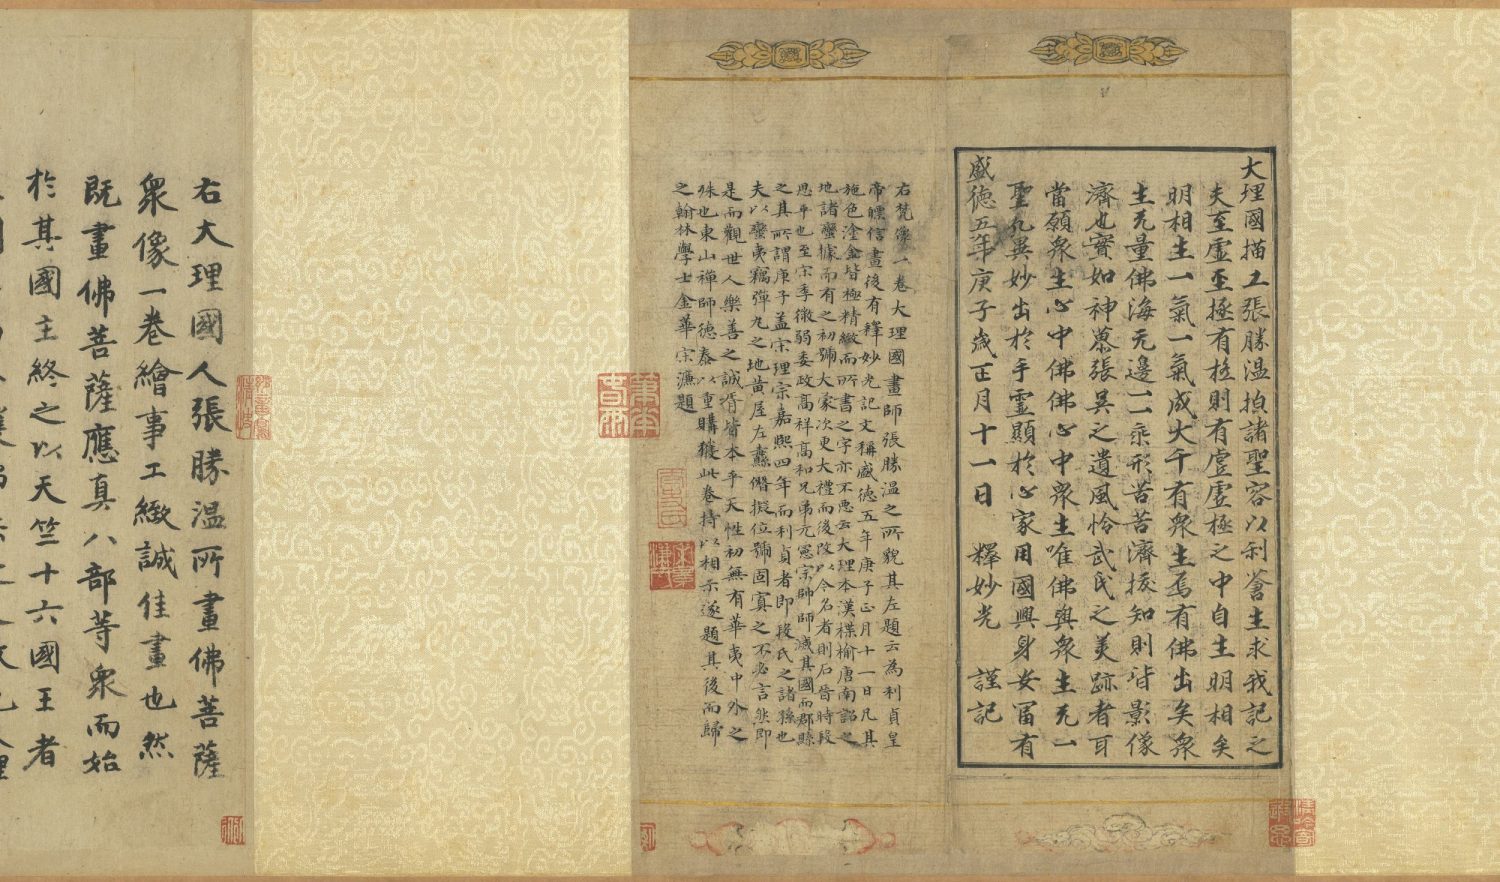 大理國描工張勝温描諸聖容以利蒼生求我記之
夫至虛至極有極則有虛虛極之中自生明相矣
明相生一氣一氣成大千有衆生焉有佛出矣衆
生无量佛海无邊一一乘形苦苦濟拔知則皆影像
濟也實如神慕張吳之遺風恰武氏之美跡者耳
當願衆生心中佛佛心中衆生唯佛與衆生无一
聖凡異妙出於手靈顯於心家用國興身安富有
盛德五年庚子歲正月十一日 釋妙光 謹記
右梵像一卷大理國畫師張勝温之所貌其左題云為利貞皇
帝曠信畫後有釋妙光記文稱盛德五年庚子正月十一日凡其
施色塗金皆極精緻而所書之字亦不惡云大理本漢楪榆唐南詔之
地諸蠻據而有之初號大蒙次更大禮而後改以今名者則石晉時段
思平也至宋季微弱委政高祥高和兄弟元憲宗帥師滅其國而郡縣
之其所謂庚子盖宋理宗嘉熙四年而利貞者即段氏之諸孫也
夫以蠻夷竊彈丸之地黄屋左纛僭擬位號固寘之不必言然即
是而觀世人樂善之誠胥皆本乎天性初無有華夷中外之
殊也東山禪師德泰以重購獲此卷持以相示遂題其後而歸
之翰林學士金華宋濂題
右大理國人張勝温所畫佛菩薩
衆像一卷繪事工緻誠佳畫也然
既畫佛菩薩應真八部等衆而始
於其國主終之以天竺十六國王者